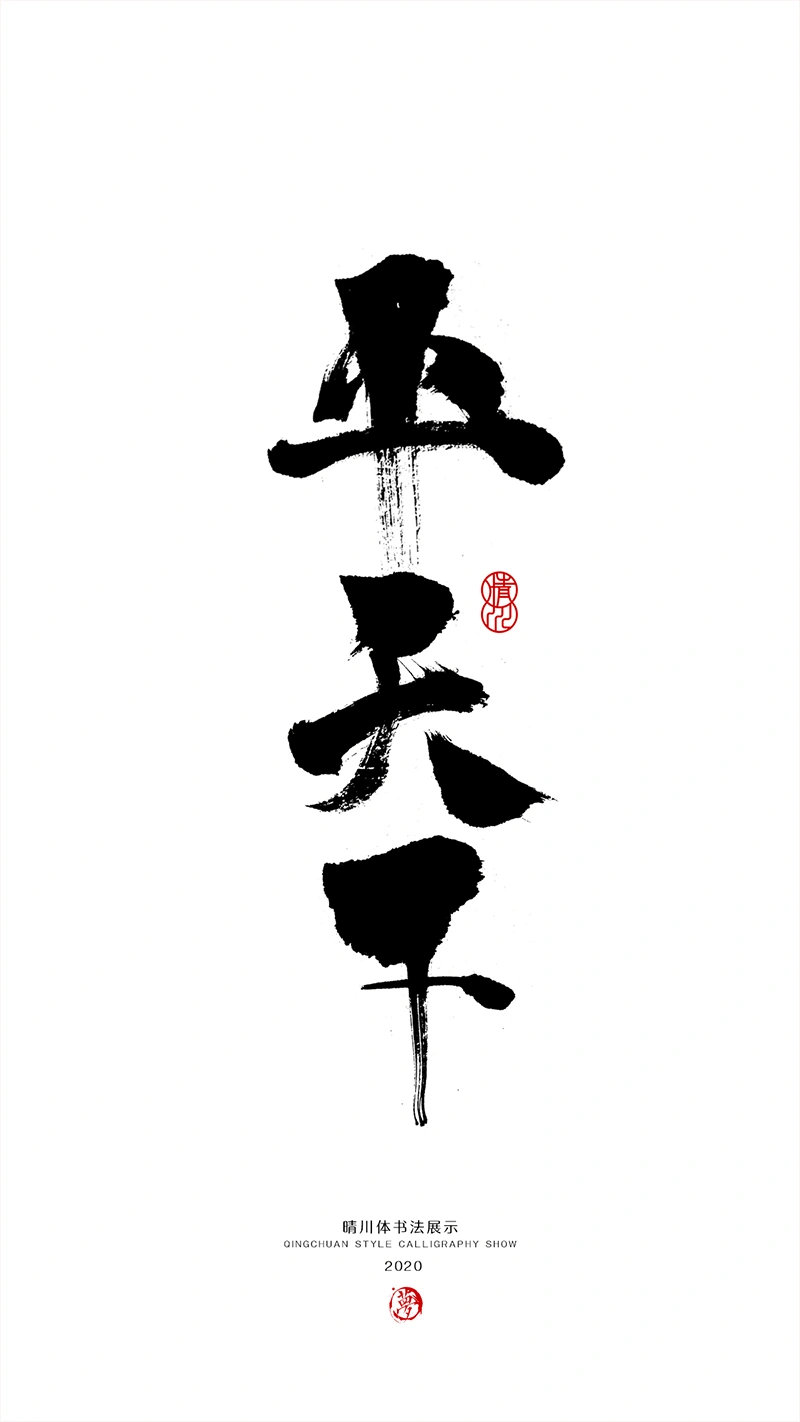 平天下
晴川
晴川体书法展示
QINGCHUAN STYLE CALLIGRAPHY SHOW
2020
夢